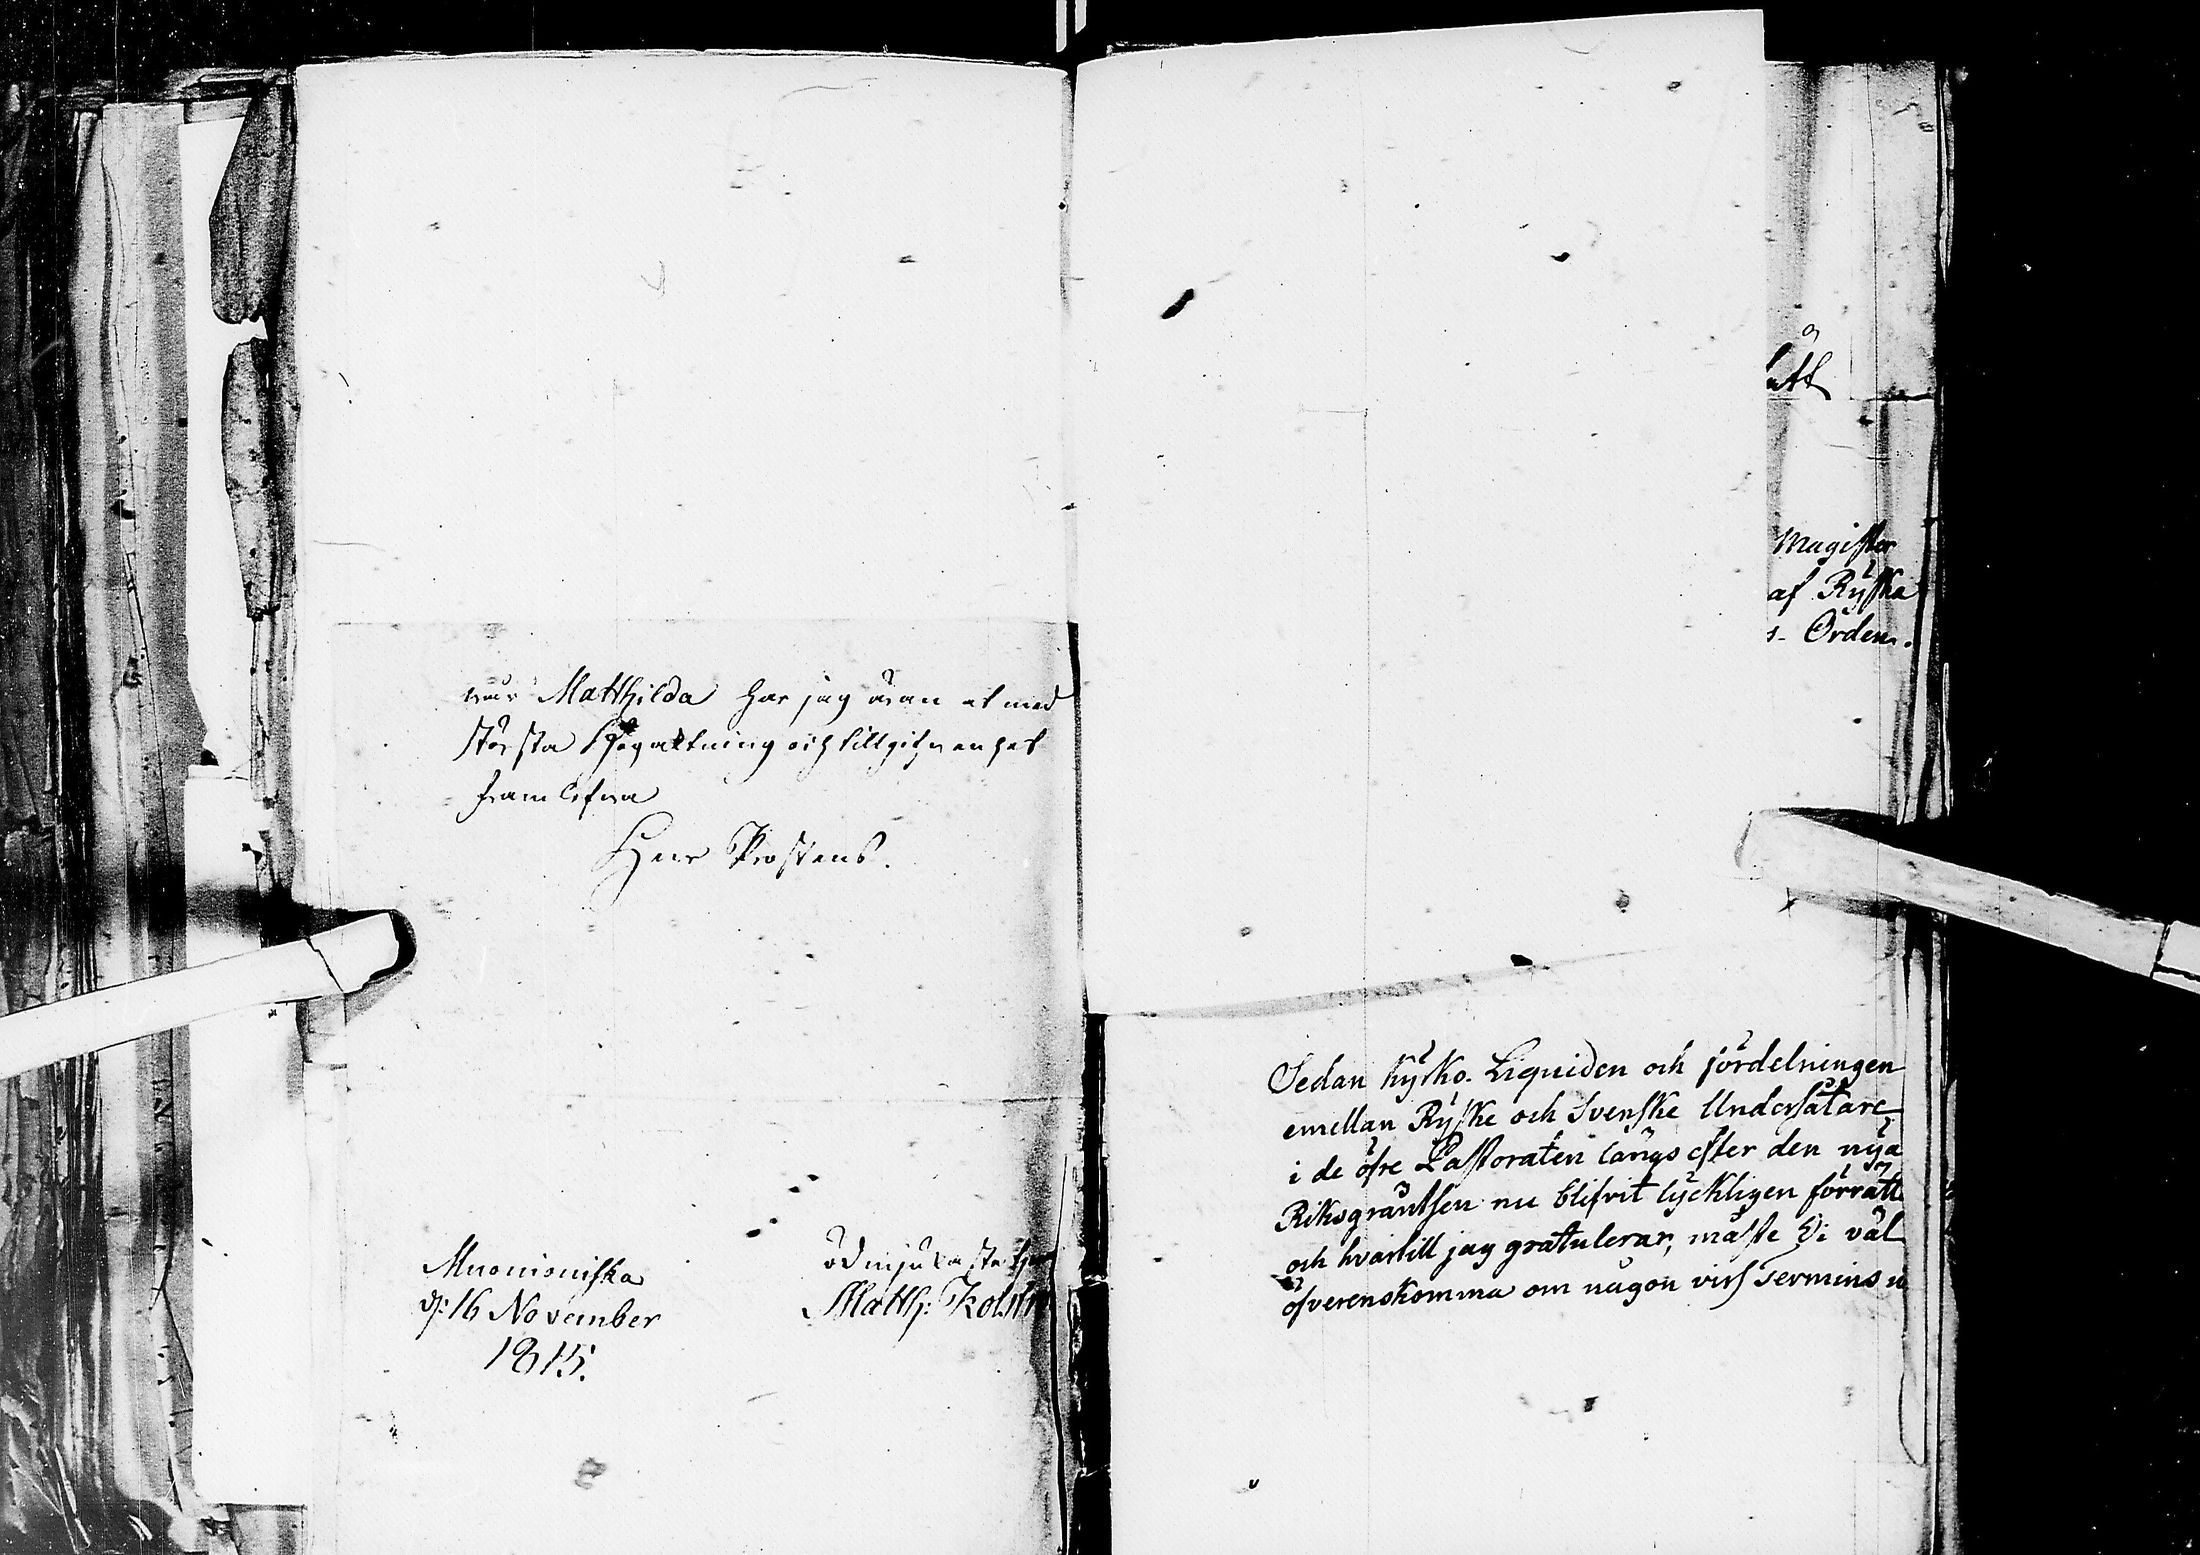 vår Matthilda har jag äran at med
största Högaktning och tillgifvenhet
framlefva
Herr Prostens.
Muonioniska
d: 16 November
1815.
ödmjukaste tjen
Matth: Kolstr
ått
Magister
af Ryska
s- Orden.
Sedan Kyrko-Liquiden och fördelningen
emellan Ryske och Svenske Undersåtare
i de öfre Pastoraten längs efter den nya
Riksgräntsen nu blifvit lyckligen förrätt
och hvartill jag gratulerar, måste Vi väl
öfverenskomma om någon viss Termins